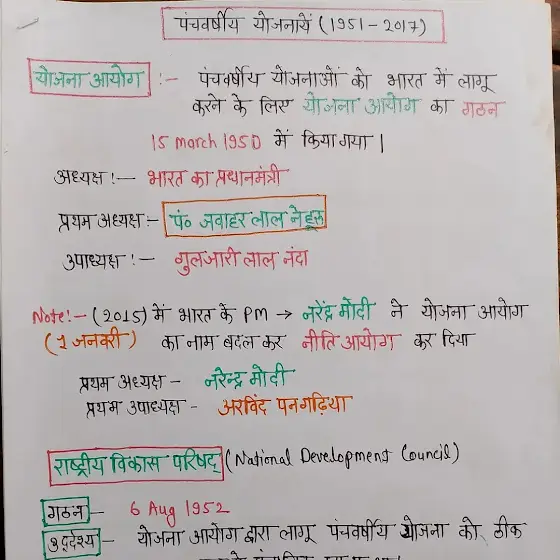 पंचवर्षीय योजनायें (1951-2017)
योजना आयोग :- पंचवर्षीय योजनाओं को भारत में लागू
करने के लिए योजना आयोग का गठन
15 March 1950 में किया गया |
अध्यक्ष :- भारत का प्रधानमंत्री
प्रथम अध्यक्ष :- पं० जवाहर लाल नेहरू
उपाध्यक्ष :- गुलजारी लाल नंदा
Note:- (2015) में भारत के PM → नरेंद्र मोदी ने योजना आयोग
(1 जनवरी) का नाम बदल कर नीति आयोग कर दिया
प्रथम अध्यक्ष - नरेन्द्र मोदी
प्रथम उपाध्यक्ष - अरविंद पनगढ़िया
राष्ट्रीय विकास परिषद् (National Development Council)
गठन - 6 Aug 1952
उद्देश्य - योजना आयोग द्वारा लागू पंचवर्षीय योजना को ठीक